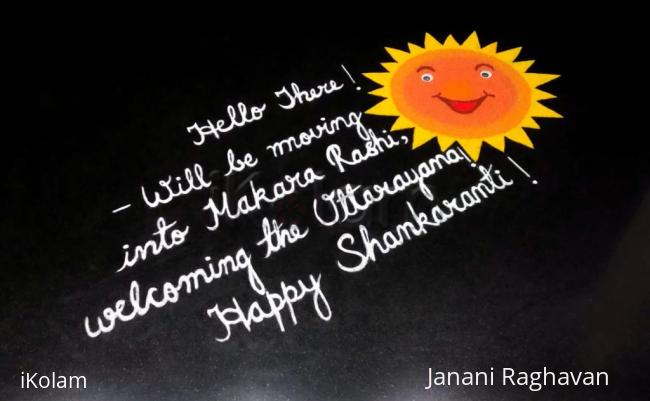 Hello There!
- Will be moving
into Makara Rashi,
welcoming the Uttarayana!
Happy Shankaranti!
iKolam
iKolam
Janani Raghavan